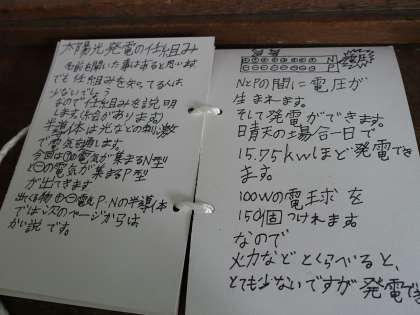 太陽光発電の仕組み
名前を聞いた事はあると思います
でも仕組みを知ってる人は
少ないでしょう
なので仕組みを説明
します(絵があります)
半導体は光などの刺激
で電気を通します。
今回は⊕の電気が集まるN型
と⊖の電気が集まるP型
が出てきます
P・Nの半導体
では次のページからは
かい説です。
N
P
NとPの間に電圧が
生まれます。
そして発電ができます。
晴天の場合一日で
15.75kwほど発電でき
ます。
100Wの電球を
150個つけれます
なので
火力などとくらべると、
とても少ないですが発電でき